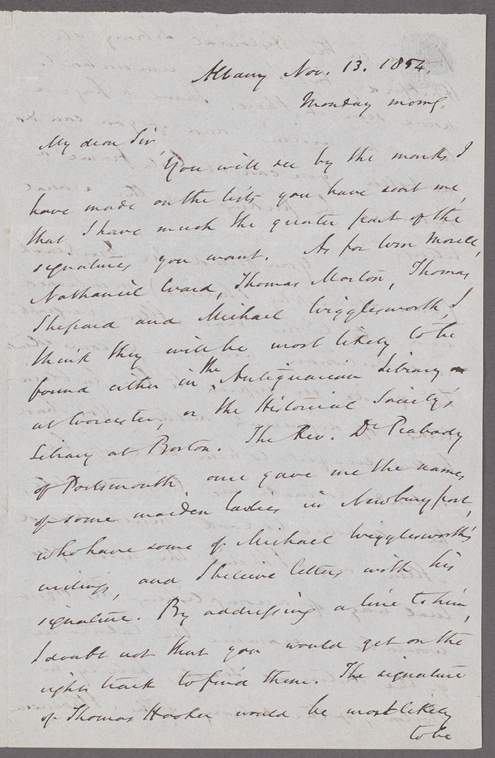 Albany Nov. 13. 1854.
Monday morng.
My dear Sir,
You will see by the marks I
have made on the lists you have sent me,
that I have much the greater part of the
signatures you want. As for Wm Morell,
Nathaniel Ward, Thomas Morton, Thomas
Shepard and Michael Wigglesworth, I
think they will be most likely to be
found either in the Antiquarian Library
at Worcester, or the Historical Society's
Library at Boston. The Rev. Dr Peabody
of Portsmouth once gave me the names
of some maiden ladies in Newburyport,
who have some of Michael Wigglesworth's
writings, and I believe letters with his
signature. By addressing a line to him,
I doubt not that you would get on the
right track to find them. The signature
of Thomas Hooker would be most likely
to be